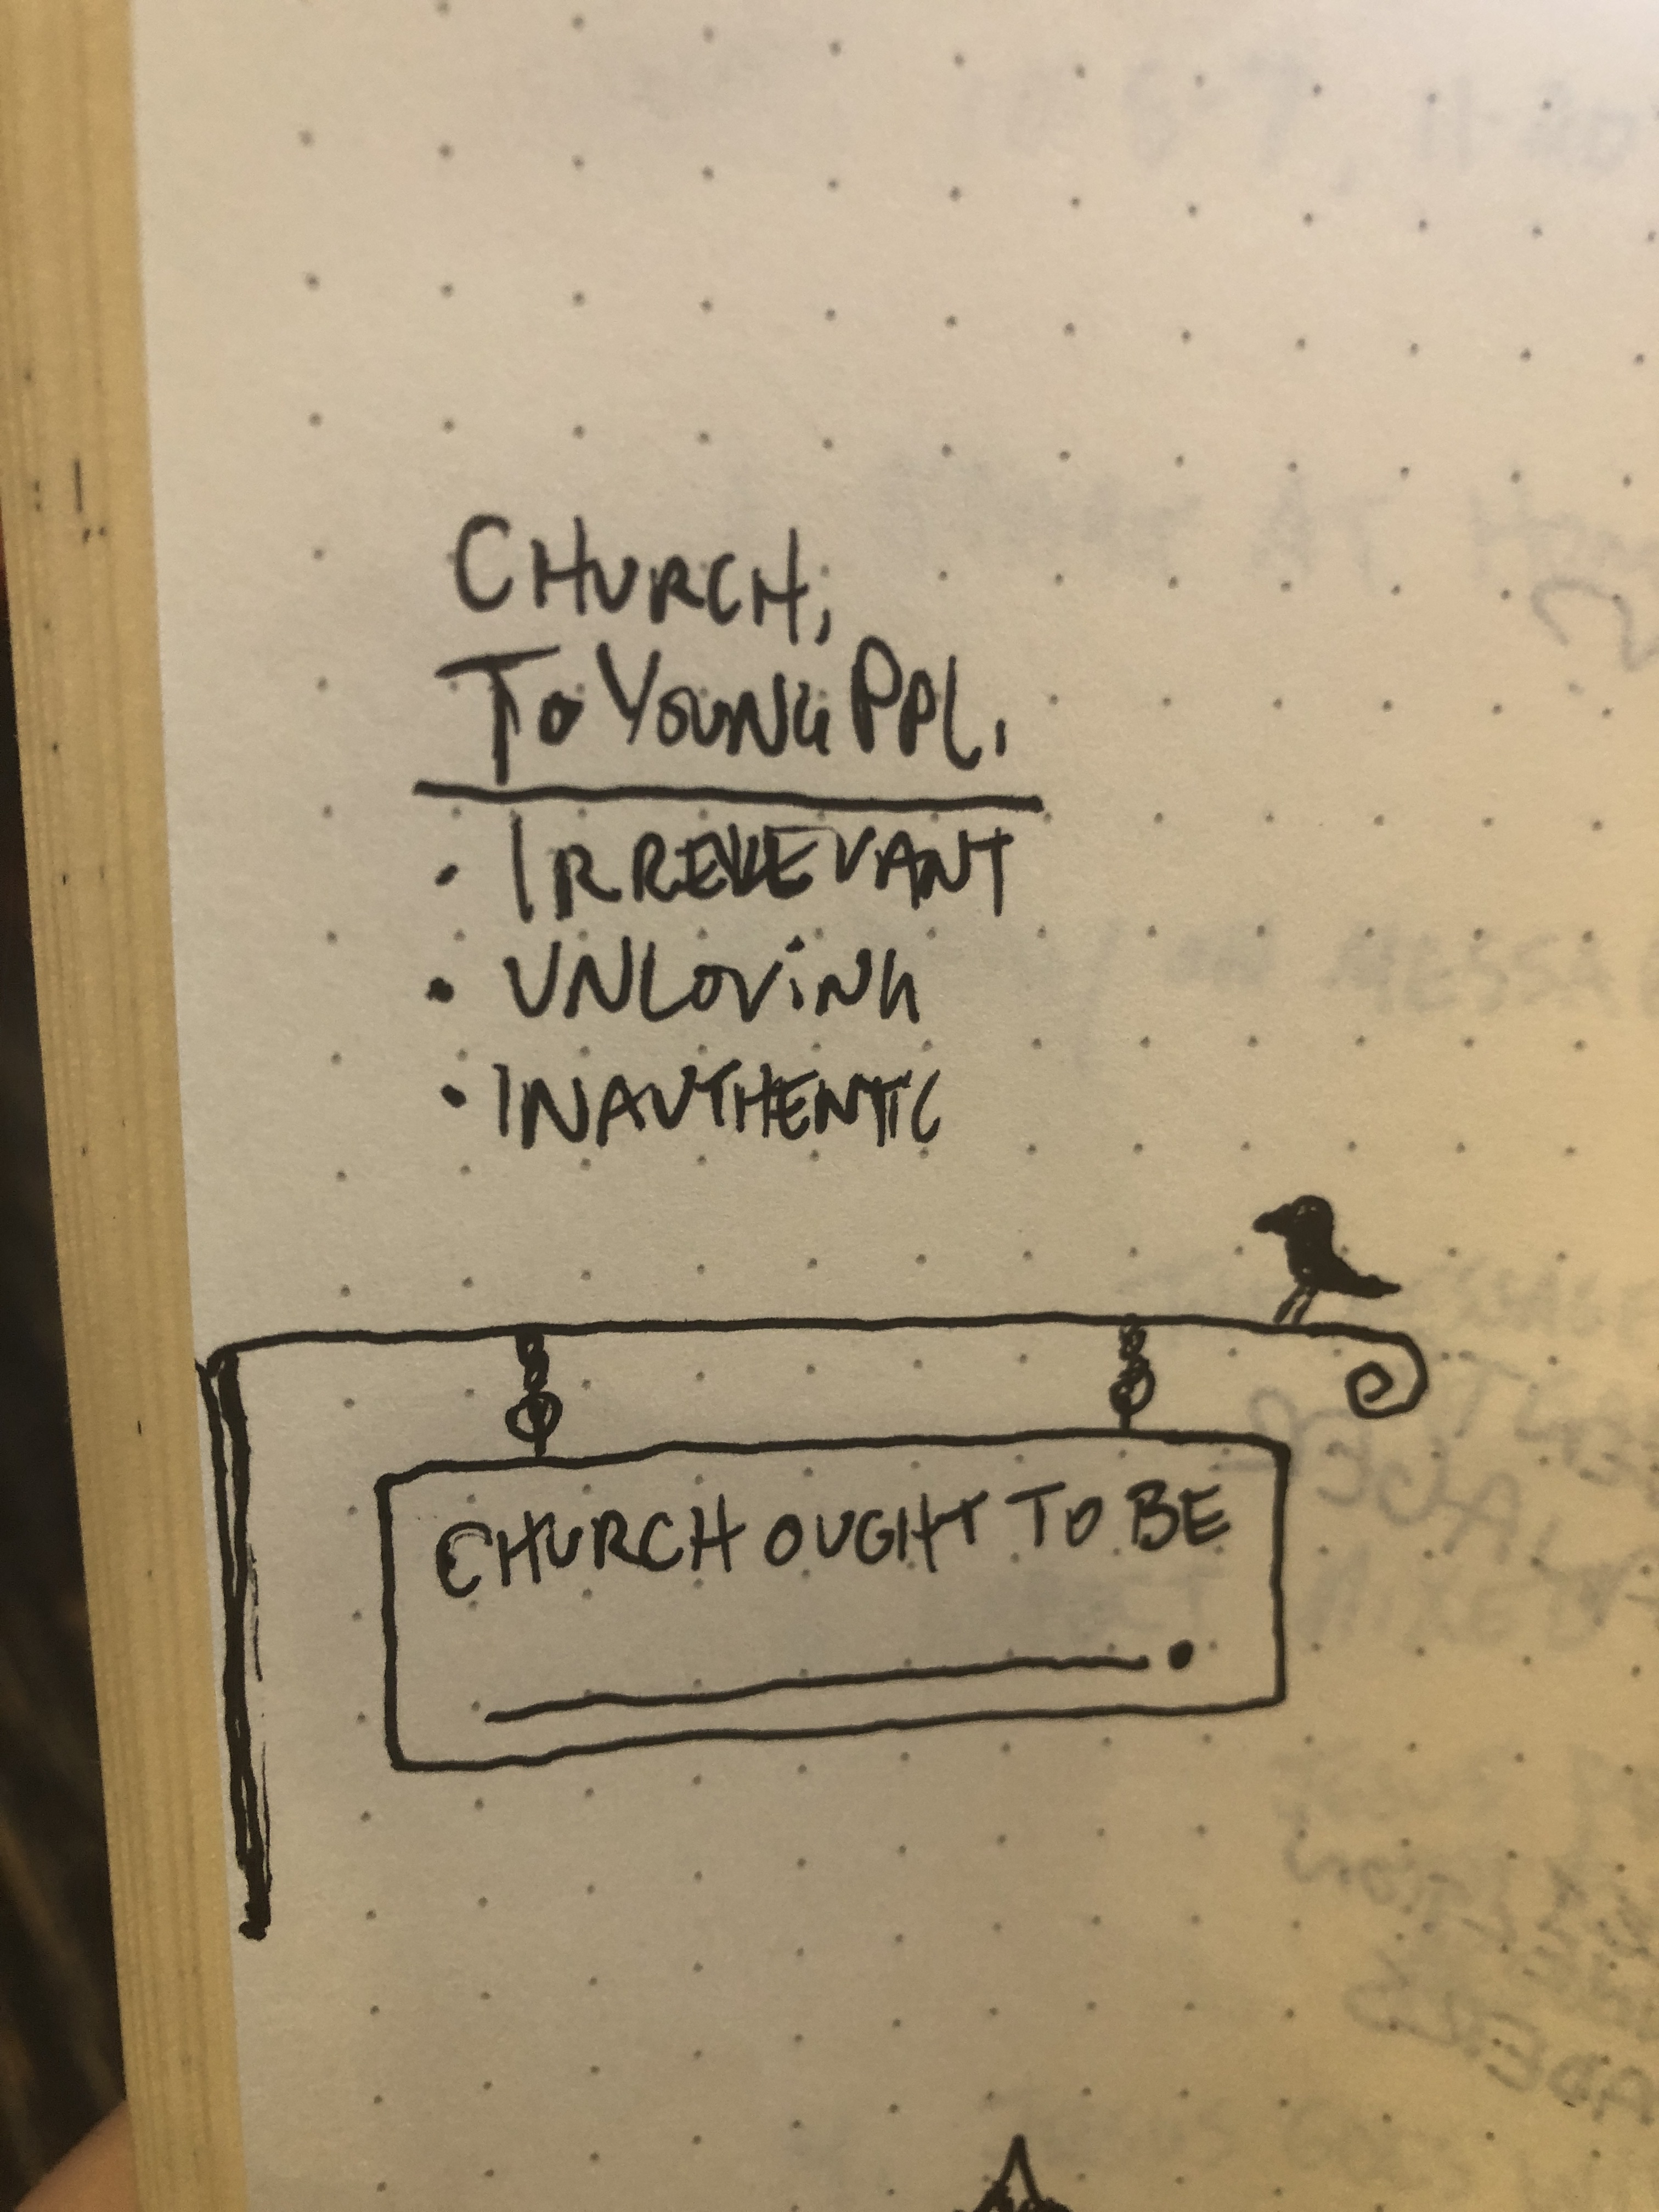 CHURCH,
TO YOUNG PPL.
• IRRELEVANT
• UNLOVING
• INAUTHENTIC
CHURCH OUGHT TO BE
.